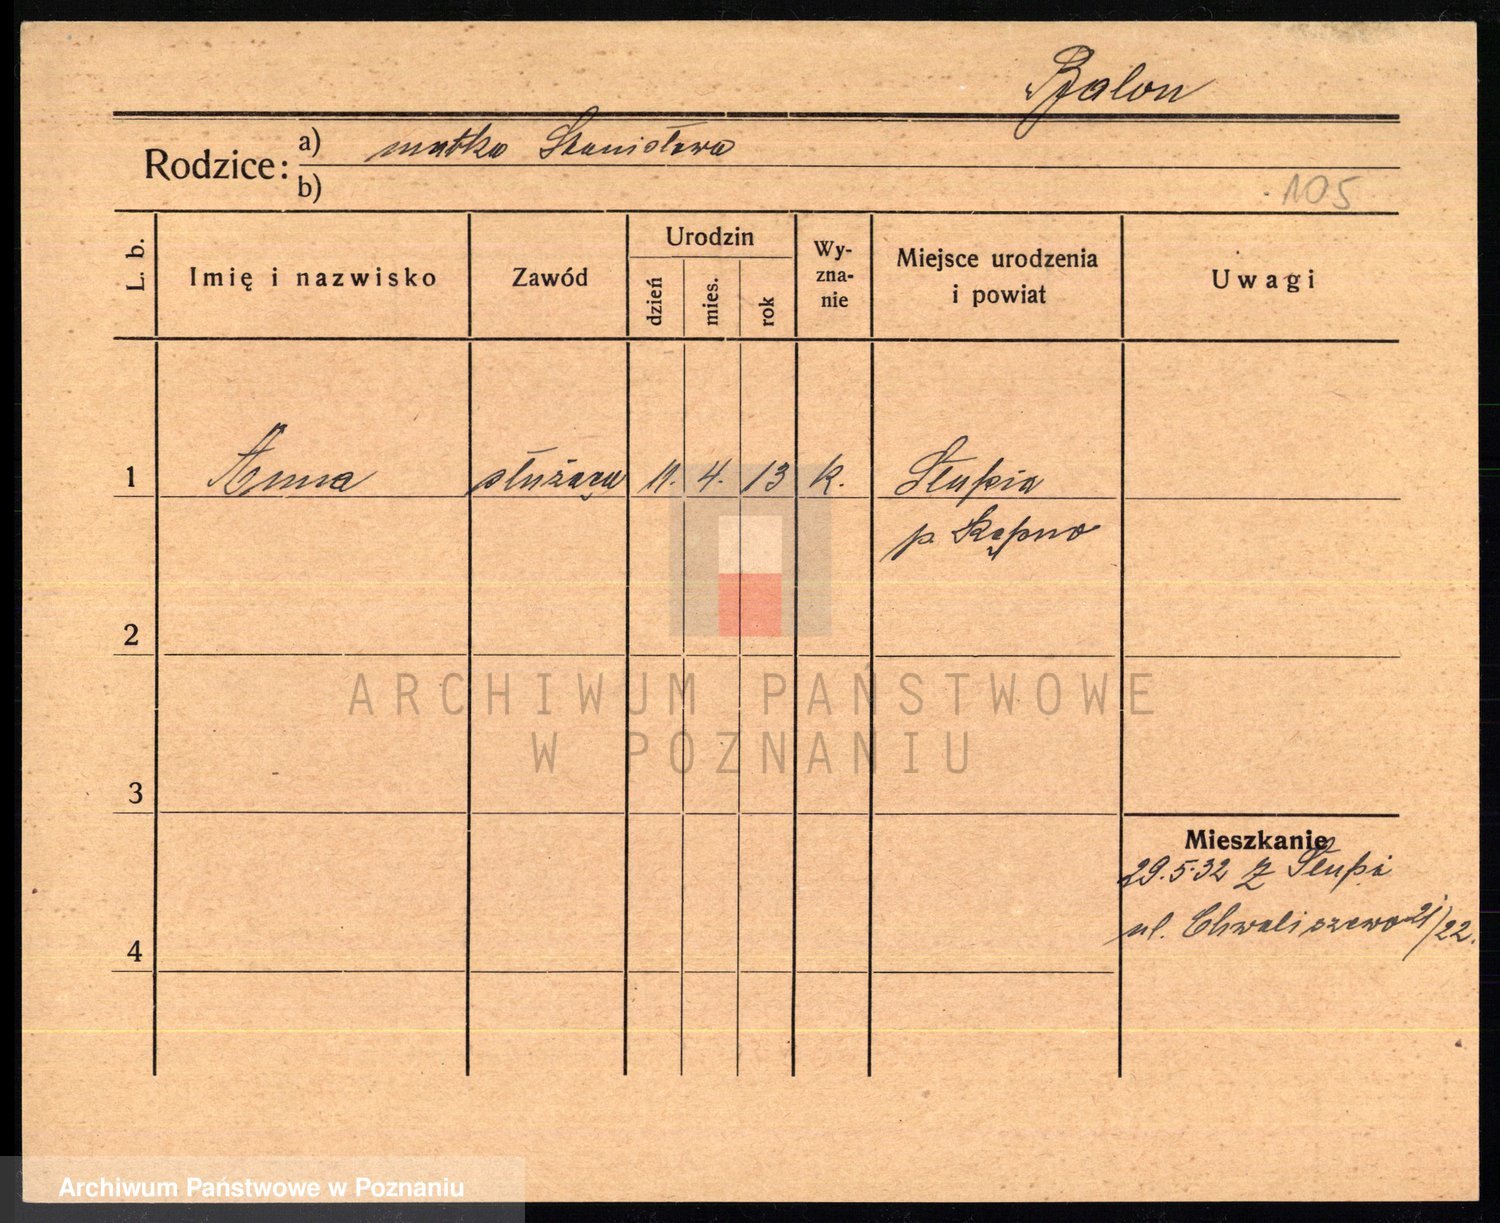 Balon
Rodzice: a) matka Stanisława
b)
105
L. b.
Imię i nazwisko
Zawód
Urodzin
dzień
mies.
rok
Wy-
zna-
nie
Miejsce urodzenia
i powiat
Uwagi
1 Anna służąca 11. 4. 13 k. Słupia
p. Kępno
2
ARCHIWUM PAŃSTWOWE
W POZNANIU
3
Mieszkanie
29.5.32 z Słupi
ul. Chwaliszewo 21/22.
4
Archiwum Państwowe w Poznaniu